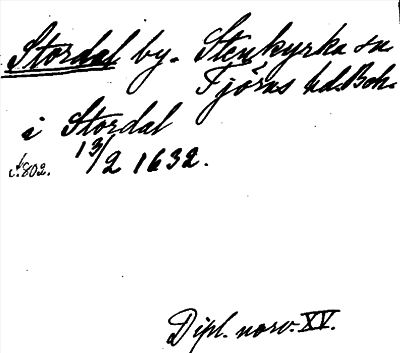 Stordal by. Stenkyrka sn
Tjörns hd. Boh.
i Stordal
13/2 1632.
s. 802.
Dipl. norv. XV.